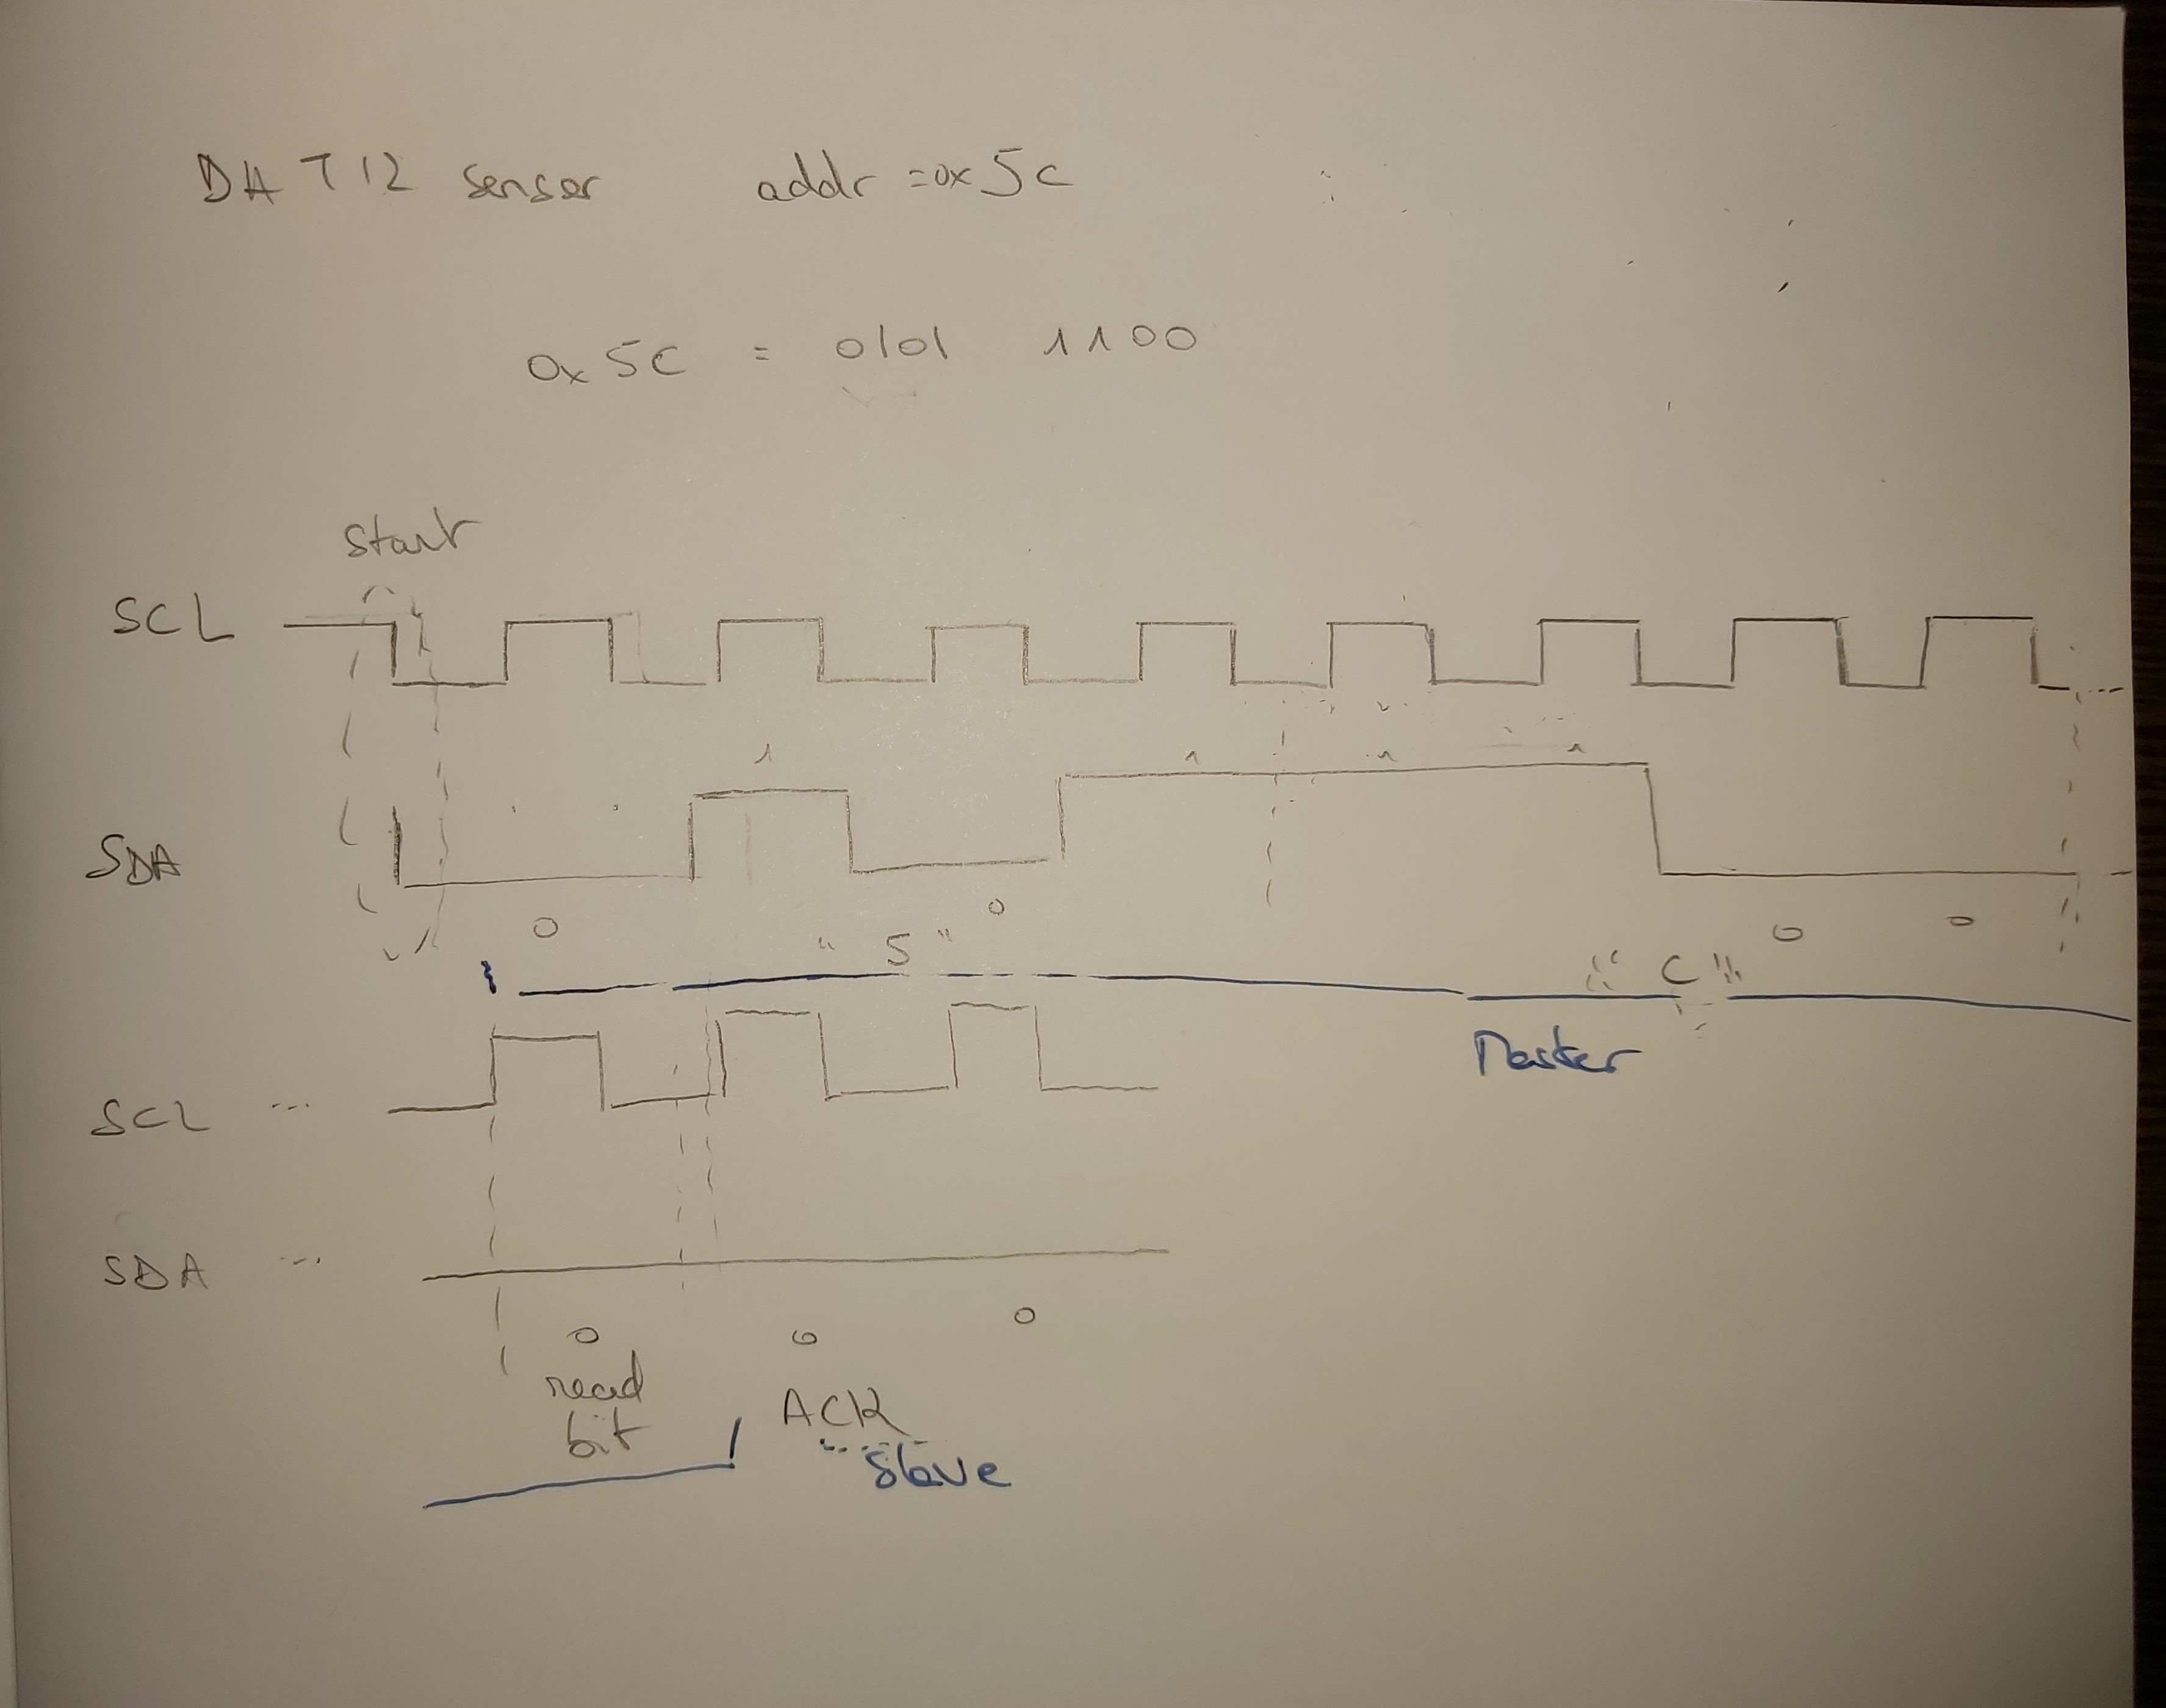 DHT12 sensor addr = 0x5C
0x5C = 0101 1100
start
SCL
1 1 1 1
SDA
0 0 0 0
"5" "C"
Master
SCL ...
SDA ...
0 0 0
read
bit
ACK
Slave